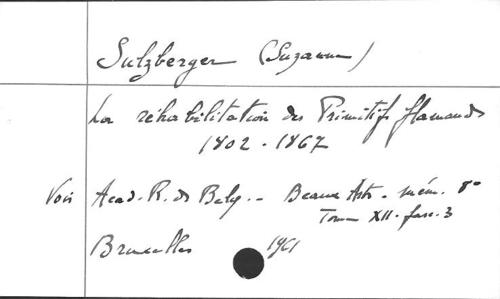 Sulzberger (Suzanne)
La réhabilitation des Primitifs flamands
1802 - 1867
Voir Acad. R. de Belg. - Beaux Arts - mém. 8°
Tome XII - fasc. 3
Bruxelles 1961